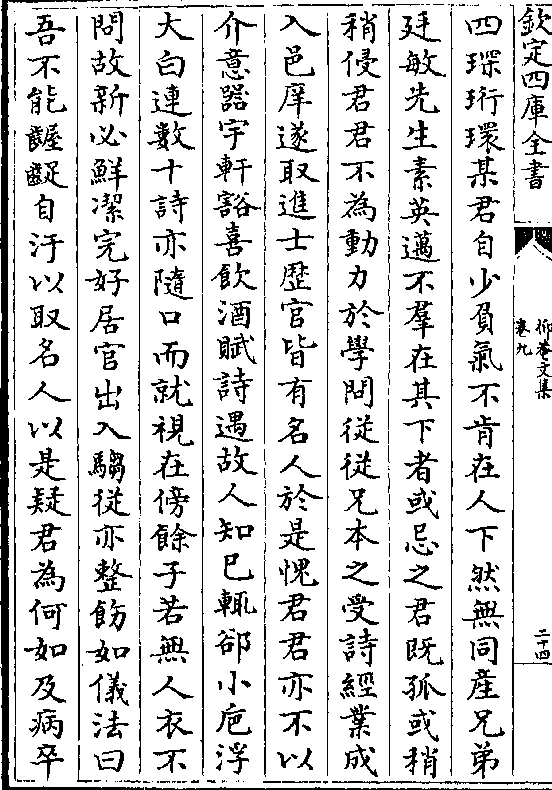 欽定四庫全書
抑菴文集
卷九
二十四
四琛珩環某君自少負氣不肯在人下然無同産兄弟
廷敏先生素英邁不羣在其下者或忌之君既孤或稍
稍侵君君不為動力於學問從從兄本之受詩經業成
入邑庠遂取進士歴官皆有名人於是愧君君亦不以
介意器宇軒豁喜飲酒賦詩遇故人知已輒郤小巵浮
大白連數十詩亦隨口而就視在傍餘子若無人衣不
問故新必鮮潔完好居官出入騶從亦整飭如儀法曰
吾不能齷齪自汙以取名人以是疑君為何如及病卒